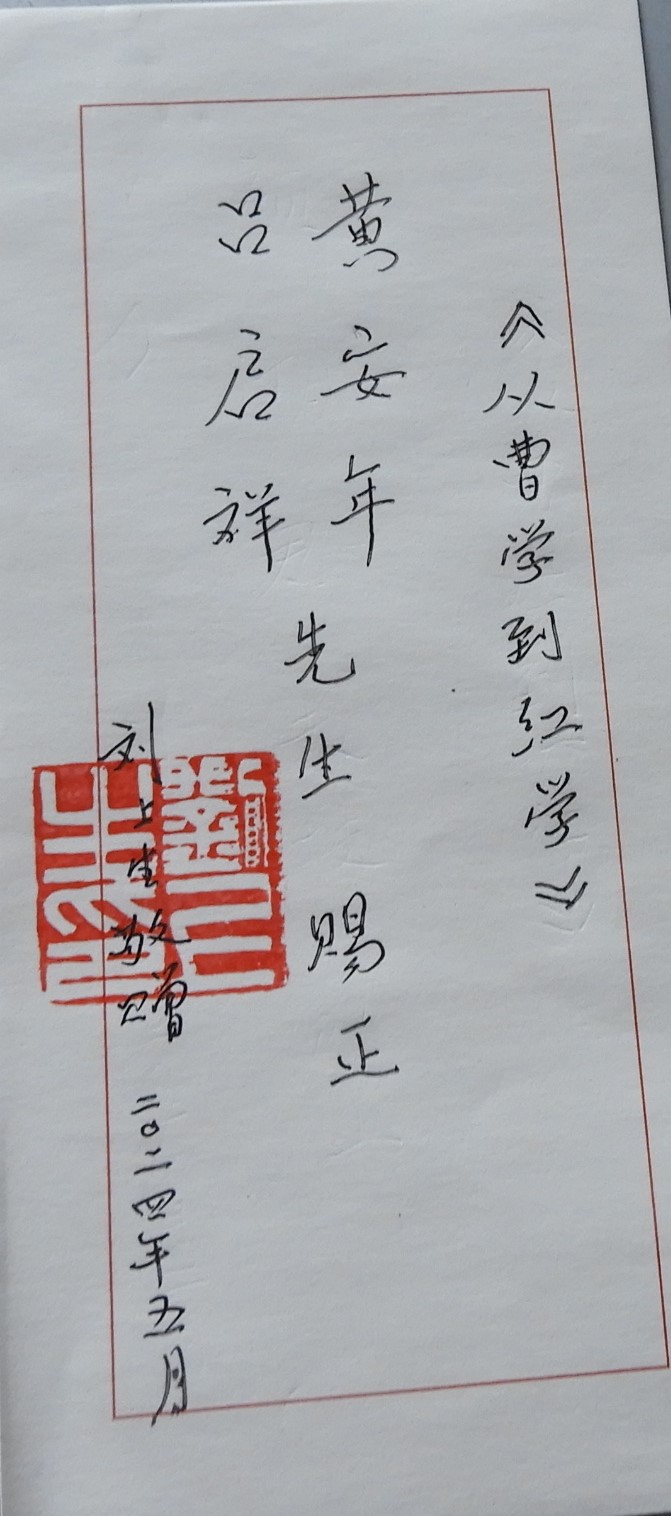 《从曹学到红学》
黄安年
吕启祥
先生 赐正
刘上生敬赠 二〇二四年五月